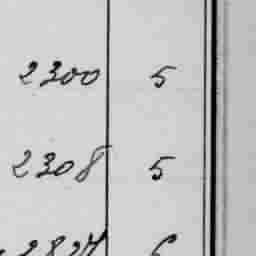 2300 5
2308 5